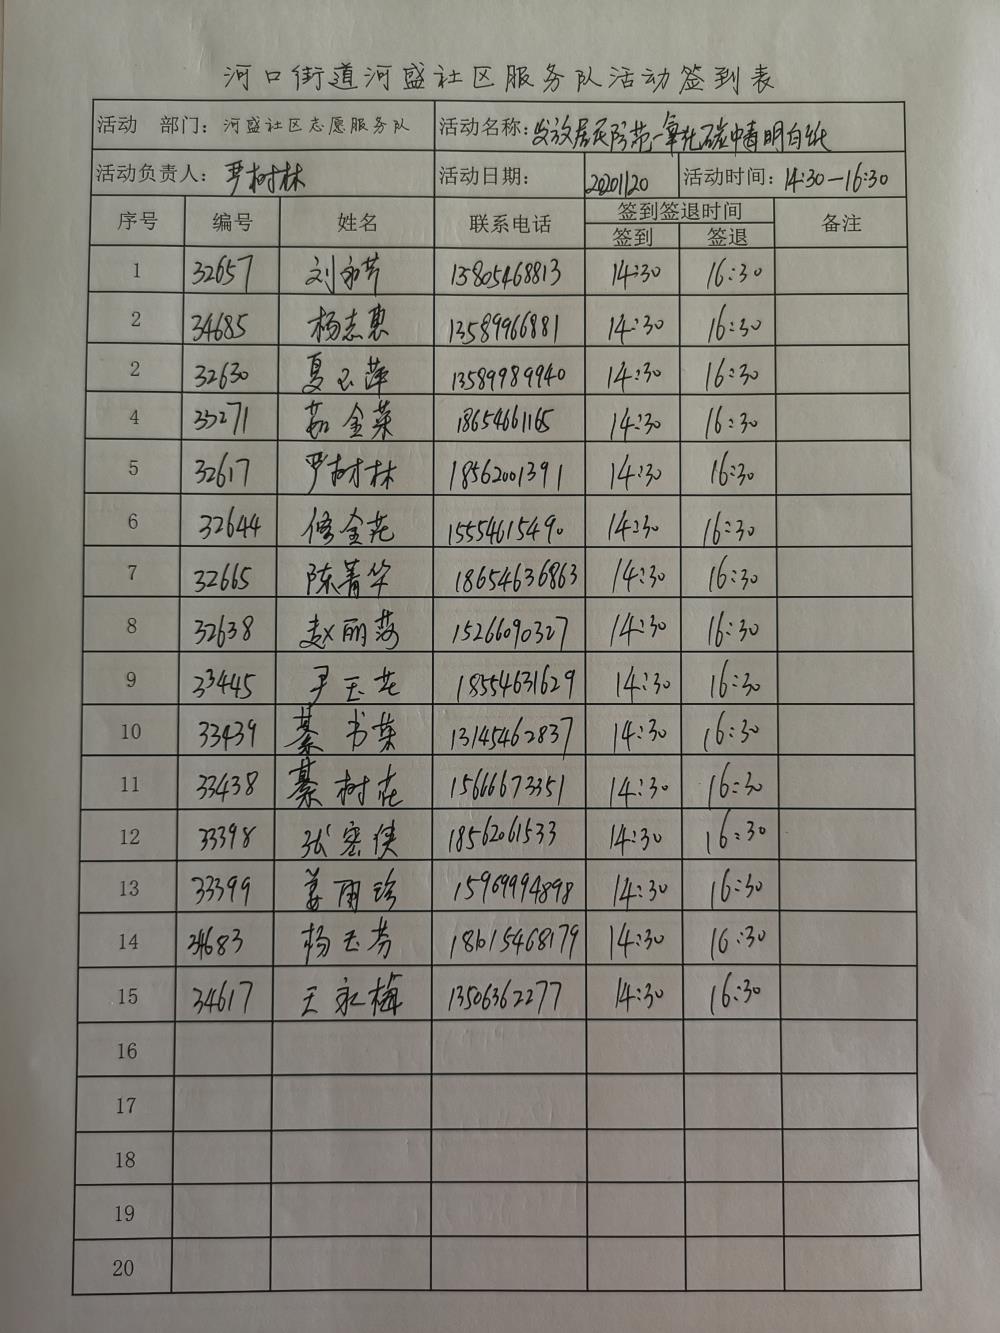 河口街道河盛社区服务队活动签到表
活动 部门：河盛社区志愿服务队 活动名称：发放居民防范一氧化碳中毒明白纸
活动负责人：严树林 活动日期： 20201120 活动时间：14:30—16:30
序号 编号 姓名 联系电话 签到签退时间 备注
签到 签退
1 32657 刘永芹 13805468813 14:30 16:30
2 34685 杨志惠 13589966881 14:30 16:30
2 32630 夏玉萍 13589989940 14:30 16:30
4 33271 茹金菜 18654661165 14:30 16:30
5 32617 严树林 18562001391 14:30 16:30
6 32644 修金花 15554615490 14:30 16:30
7 32665 陈菁华 18654636863 14:30 16:30
8 32638 赵丽 15266090327 14:30 16:30
9 33445 尹玉花 18554631629 14:30 16:30
10 33439 綦书菜 13145462837 14:30 16:30
11 33438 綦树花 15666673351 14:30 16:30
12 33398 张密侠 18562061533 14:30 16:30
13 33399 姜雨珍 15969994898 14:30 16:30
14 34683 杨玉芬 18615468179 14:30 16:30
15 34617 王永梅 13506362277 14:30 16:30
16
17
18
19
20